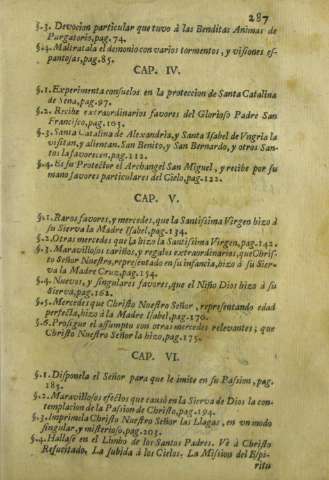 287
§.3. Devocion particular que tuvo à las Benditas Animas de
Purgatorio, pag. 74.
§.4. Maltratala el demonio con varios tormentos, y visiones es-
pantosas, pag. 85.
CAP. IV.
§.1. Experimenta consuelos en la proteccion de Santa Catalina
de Sena, pag. 97.
§.2. Recibe extraordinarios favores del Glorioso Padre San
Francisco, pag. 103.
§.3. Santa Catalina de Alexandria, y Santa Isabel de Vngria la
visitan, y alientan. San Benito, y San Bernardo, y otros San-
tos la favorecen, pag. 112.
§.4. Es su Protector el Archangel San Miguel, y recibe por su
mano favores particulares del Cielo, pag. 122.
CAP. V.
§.1. Raros favores, y mercedes, que la Santissima Virgen hizo à
su Sierva la Madre Isabel, pag. 134.
§.2. Otras mercedes que la hizo la Santissima Virgen, pag. 142.
§.3. Maravillosos cariños, y regalos extraordinarios, que Chris-
to Señor Nuestro, representado en su infancia, hizo à su Sier-
va la Madre Cruz, pag. 154.
§.4. Nuevos, y singulares favores, que el Niño Dios hizo à su
Sierva, pag. 162.
§.5. Mercedes que Christo Nuestro Señor, representando edad
perfecta, hizo à la Madre Isabel, pag. 170.
§.6. Prosigue el assumpto con otras mercedes relevantes; que
Christo Nuestro Señor la hizo, pag. 175.
CAP. VI.
§.1. Disponela el Señor para que le imite en su Passion, pag.
183.
§.2. Maravillosos efectos que causò en la Sierva de Dios la con-
templacion de la Passion de Christo, pag. 194.
§.3. Imprimela Christo Nuestro Señor las Llagas, en vn modo
singular, y misterioso, pag. 203.
§.4. Hallase en el Limbo de los Santos Padres. Vè à Christo
Resucitado, La subida à los Cielos, La Mission del Espi-
ritu